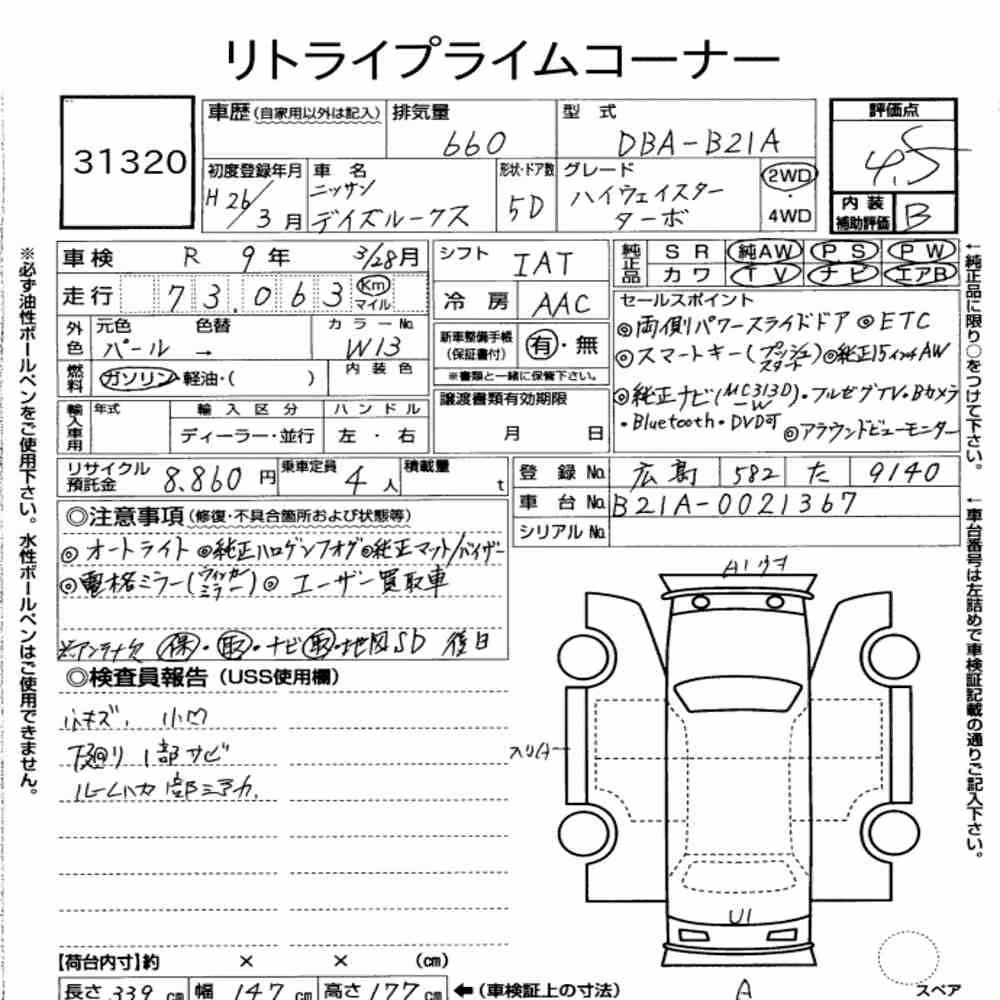 リトライプライムコーナー
31320
車歴(自家用以外は記入) 排気量 660 型式 DBA-B21A
評価点 4.5
初度登録年月 H26/3月 車名 ニッサン デイズルークス
形状・ドア数 5D グレード ハイウェイスター ターボ
2WD・4WD
内装補助評価 B
車検 R 9年 3/28月
走行 73,063 Km マイル
シフト IAT
冷房 AAC
純正品 SR 純AW PS PW
カワ TV ナビ エアB
外色 元色 パール → 色替 カラーNo. W13
燃料 ガソリン・軽油・( ) 内装色
新車整備手帳(保証書付) 有・無
※書類と一緒に保管下さい。
セールスポイント
◎両側パワースライドドア ◎ETC
◎スマートキー(プッシュスタート) ◎純正15インチAW
◎純正ナビ(MC313D-W)・フルセグTV・Bカメラ
・Bluetooth・DVD可 ◎アラウンドビューモニター
輸入車用 年式 輸入区分 ハンドル
ディーラー・並行 左・右
譲渡書類有効期限
月 日
リサイクル預託金 8,860円 乗車定員 4人 積載量 t
登録No. 広島 582 た 9140
車台No. B21A-0021367
シリアルNo.
◎注意事項(修復・不具合箇所および状態等)
◎オートライト ◎純正ハロゲンフォグ ◎純正マット/バイザー
◎電格ミラー(ウィンカーミラー) ◎ユーザー買取車
保・取・ナビ取・地図SD 後日
◎検査員報告(USS使用欄)
小キズ, 小凹
下廻り 1部サビ
A1
U1
A
【荷台内寸】約 × × (cm)
長さ 339 cm 幅 147 cm 高さ 177 cm ←(車検証上の寸法)
スペア
※必ず油性ボールペンをご使用下さい。水性ボールペンはご使用できません。
←純正品に限り○をつけて下さい。
←車台番号は左詰めで車検証記載の通りご記入下さい。